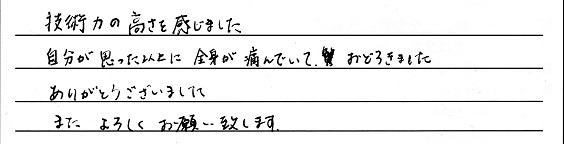 技術力の高さを感じました
自分が思った以上に全身が痛んでいて、おどろきました
ありがとうございました
また よろしく お願い致します。